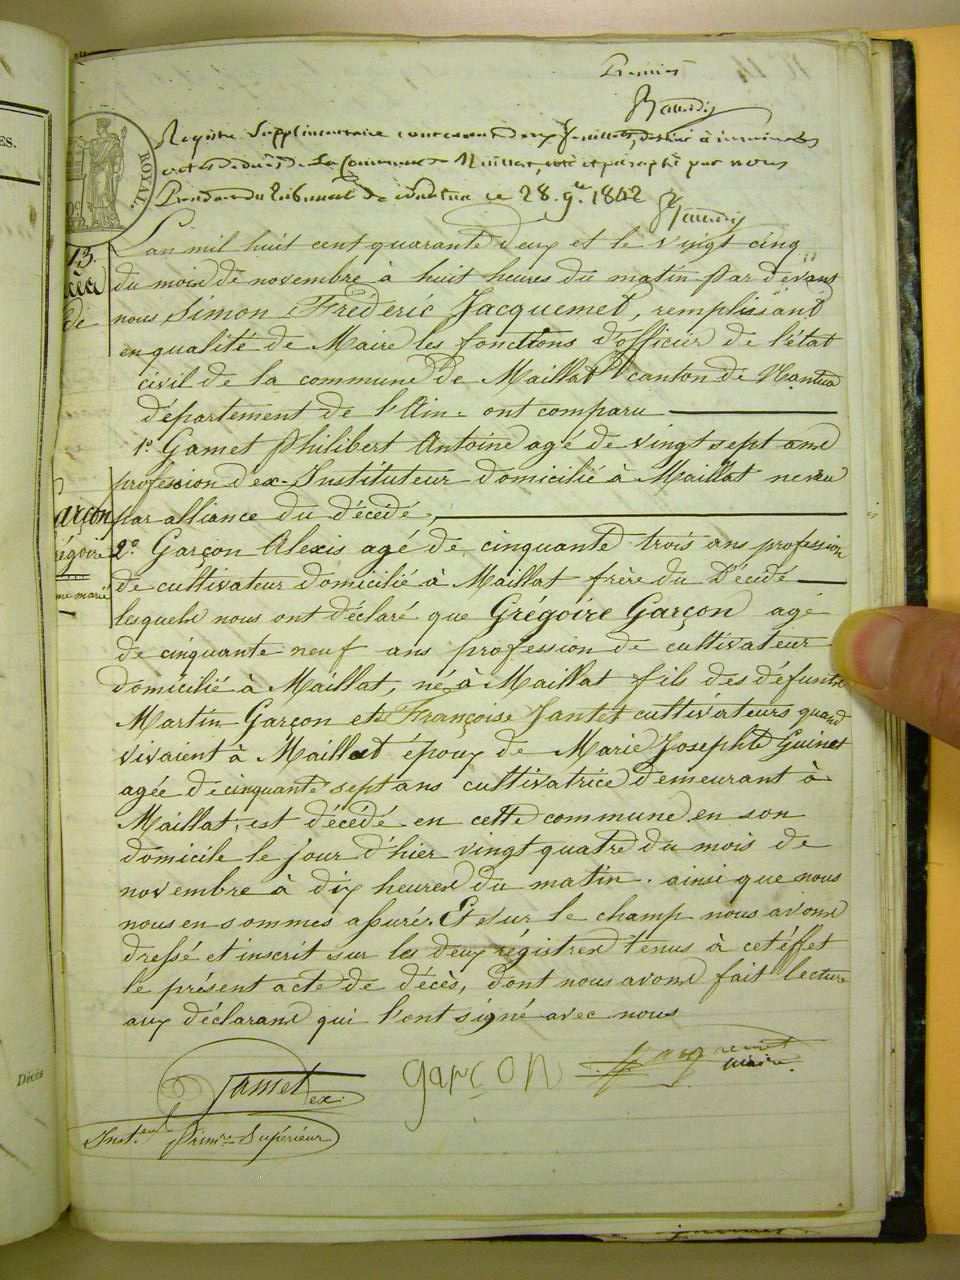 Premier
Registre Supplémentaire contenant deux feuillets, destiné à inscrire les
actes de décès de la Commune de Maillat, coté et paraphé par nous
Président du Tribunal de Nantua ce 28 9.bre 1842
ROYAL.
13.
L'an mil huit cent quarante deux et le vingt cinq
du mois de novembre à huit heures du matin par devant
nous Simon Fréderic Jacquemet, remplissant
en qualité de Maire les fonctions d'officier de l'état
civil de la commune de Maillat canton de Nantua
département de l'Ain. ont comparu
1.o Gamet Philibert Antoine agé de vingt sept ans
profession d'ex-Instituteur domicilié à Maillat neveu
par alliance du décédé,
2.o Garçon Alexis agé de cinquante trois ans profession
de cultivateur domicilié à Maillat frère du Décédé
lesquels nous ont déclaré que Grégoire Garçon agé
de cinquante neuf ans profession de cultivateur
domicilié à Maillat, né à Maillat fils des défunts
Martin Garçon et Françoise Jantet cultivateurs quand
vivaient à Maillat époux de Marie Josephte Guinet
agée de cinquante sept ans cultivatrice demeurant à
Maillat, est décédé en cette commune en son
domicile le jour d'hier vingt quatre du mois de
novembre à dix heures du matin. ainsi que nous
nous en sommes assuré. Et sur le champ nous avons
dressé et inscrit sur les deux régistres tenus à cet éffet
le présent acte de décès, dont nous avons fait lecture
aux déclarans qui l'ont signé avec nous
Gamet ex. garçon Jacquemet
maire.
Inst.eur Prim.re Supérieur
Décès